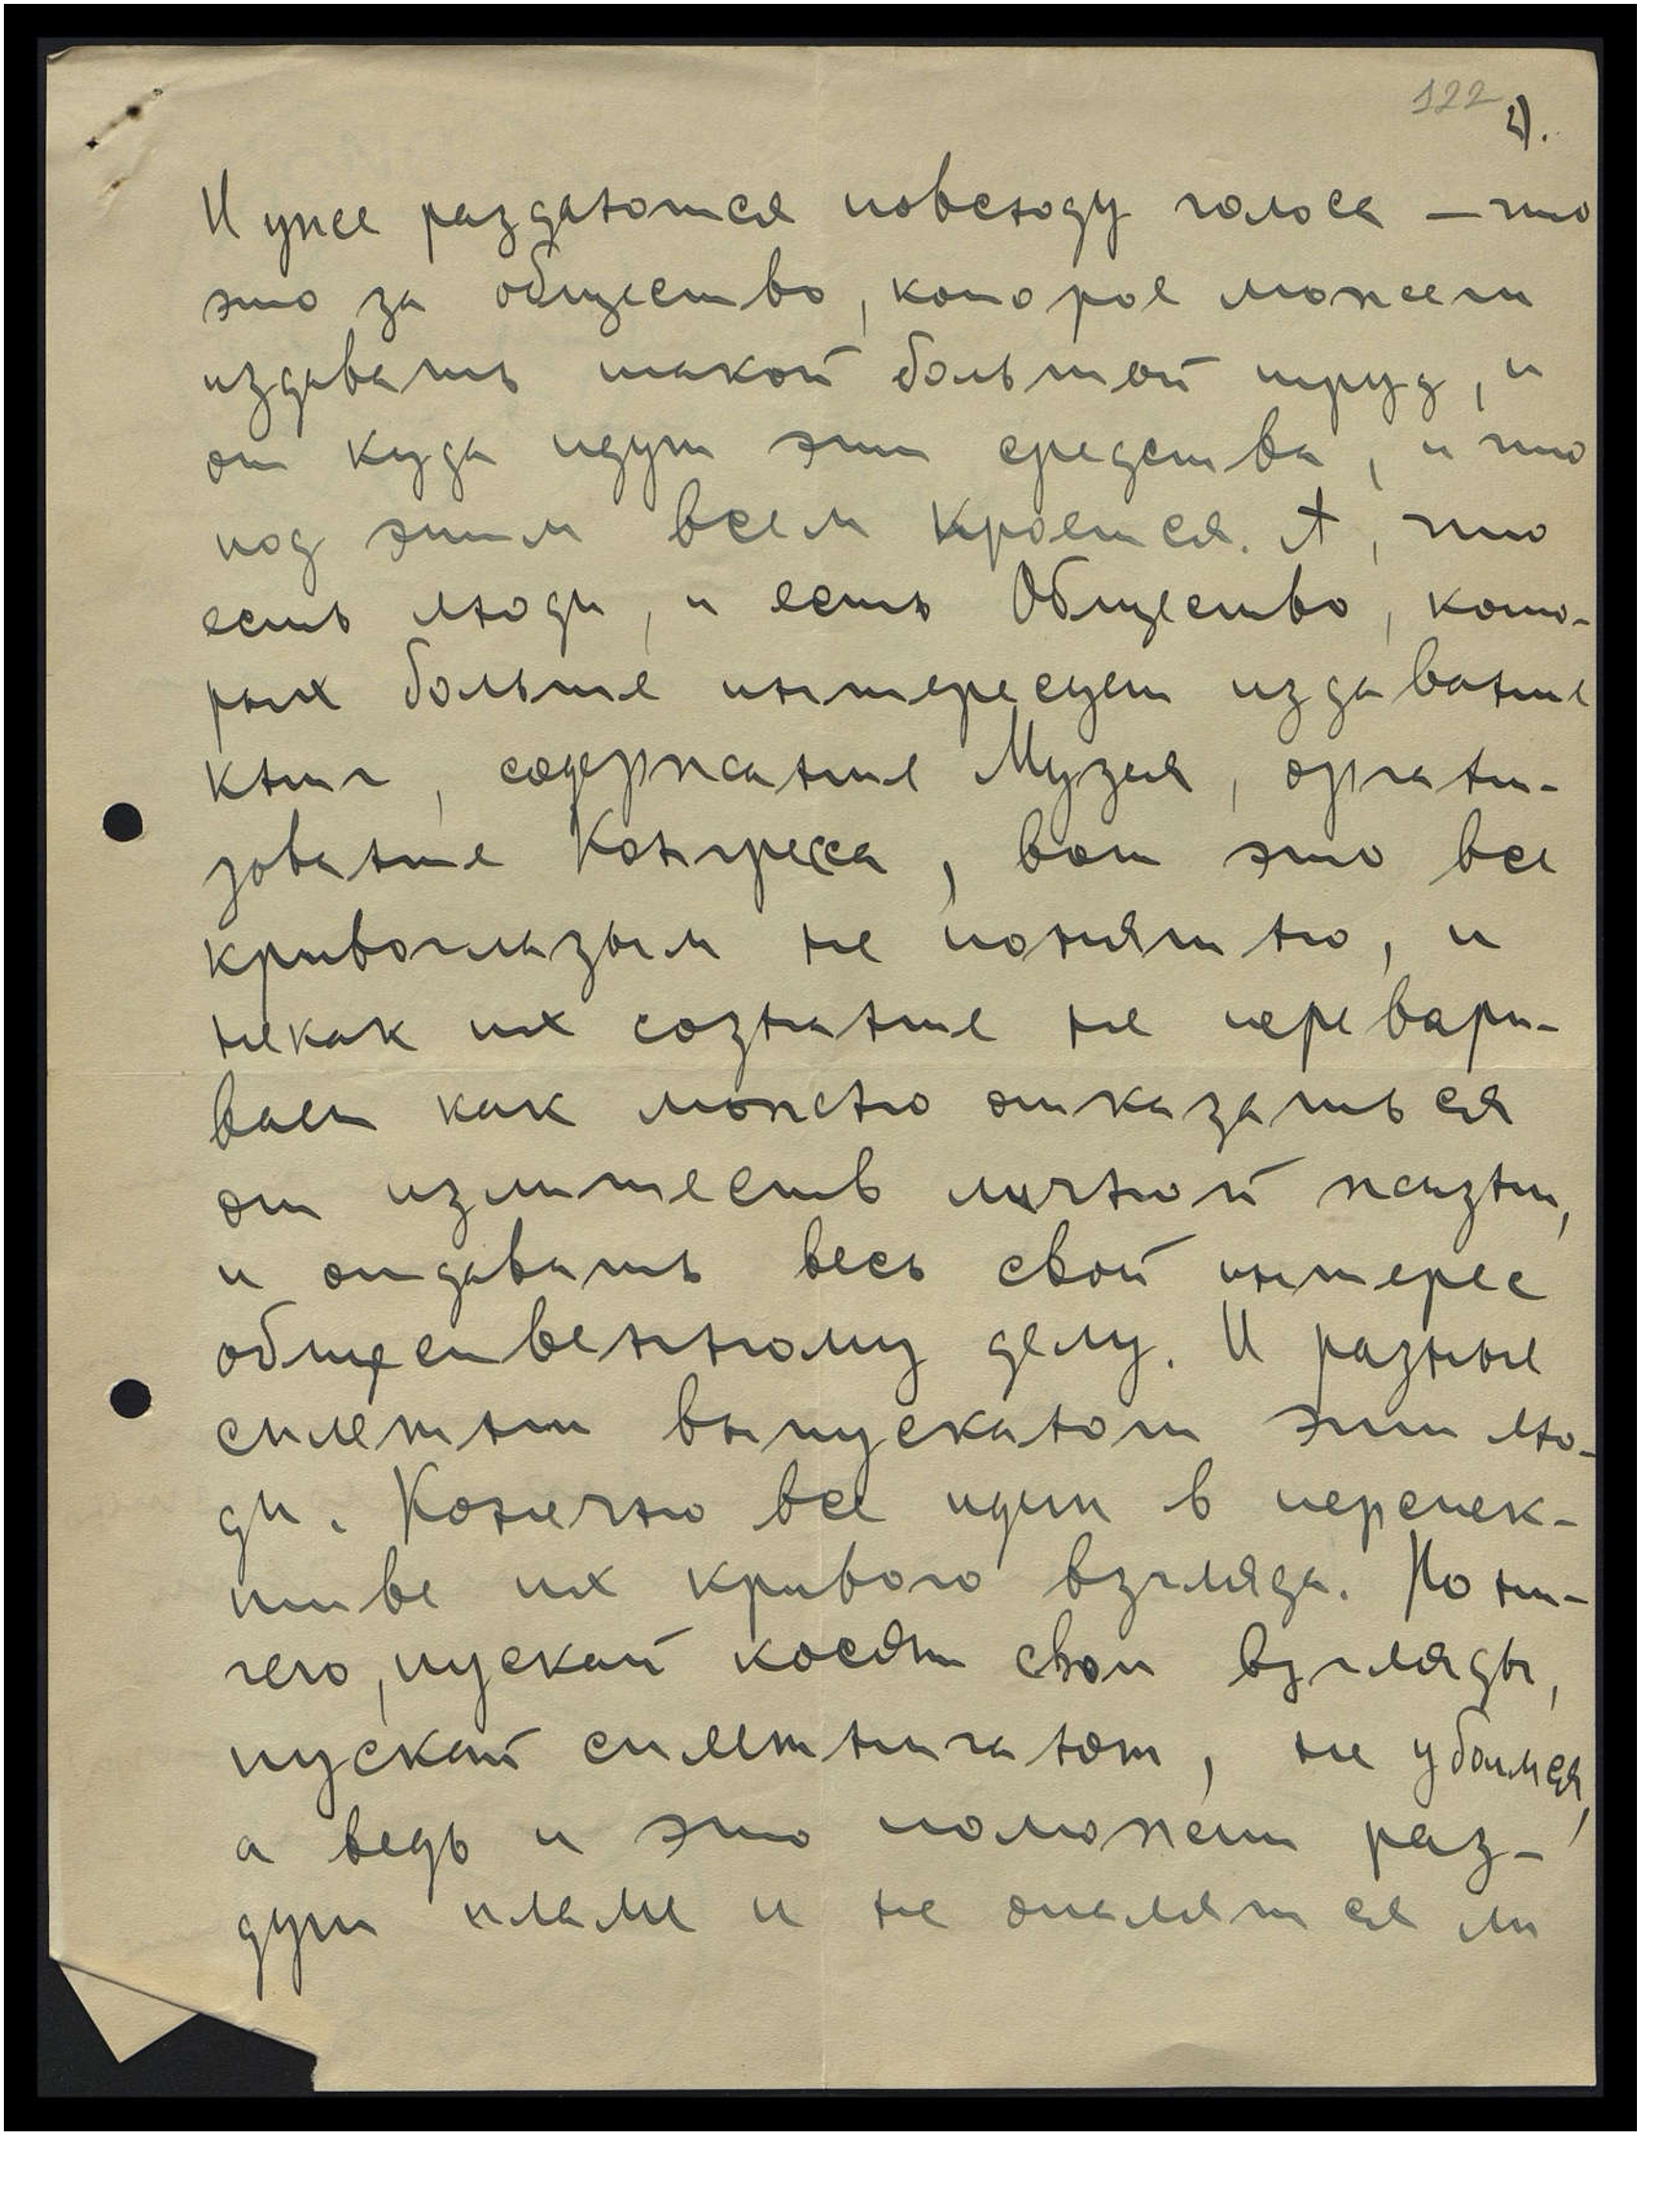 122
2).
И уже раздаются повсюду голоса — что
это за общество, которое может
издавать такой большой труд, и
от куда идут эти средства, и что
под этим всем кроется. А, что
есть люди, и есть Общество, кото-
рых больше интересует издавание
книг, содержание Музея, органи-
зование Конгресса, вот это все
кривоглазым не понятно, и
некак их сознание не перевари-
вает как можно отказаться
от излишеств личной жизни,
и отдавать весь свой интерес
общественному делу. И разные
сплетни выпускают эти лю-
ди. Конечно все идет в перспек-
тиве их кривого взгляда. Но ни-
чего, пускай косят свои взгляды,
пускай сплетничают, не убоимся,
а ведь и это поможет раз-
дут пламе и не опалятся ли